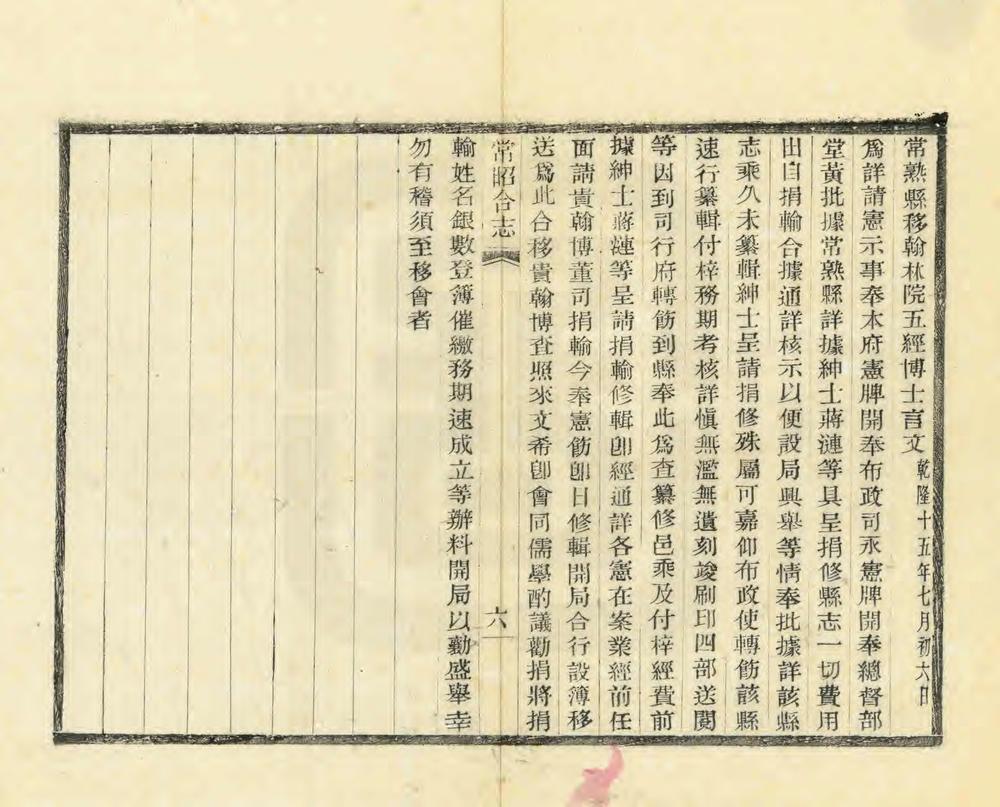 常熟縣移翰林院五經博士言文 乾隆十五年七月初六日
爲詳請憲示事奉本府憲牌開奉布政司永憲牌開奉總督部
堂黃批據常熟縣詳據紳士蔣漣等具呈捐修縣志一切費用
出自捐輸合據通詳核示以便設局興舉等情奉批據詳該縣
志乘久未纂輯紳士呈請捐修殊屬可嘉仰布政使轉飭該縣
速行纂輯付梓務期考核詳愼無濫無遺刻竣刷印四部送閱
等因到司行府轉飭到縣奉此爲查纂修邑乘及付梓經費前
據紳士蔣漣等呈請捐輸修輯卽經通詳各憲在案業經前任
面請貴翰博董司捐輸今奉憲飭卽日修輯開局合行設簿移
送爲此合移貴翰博查照來文希卽會同儒學酌議勸捐將捐
常昭合志 六
輸姓名銀數登簿催繳務期速成立等辦料開局以勷盛舉幸
勿有稽須至移會者